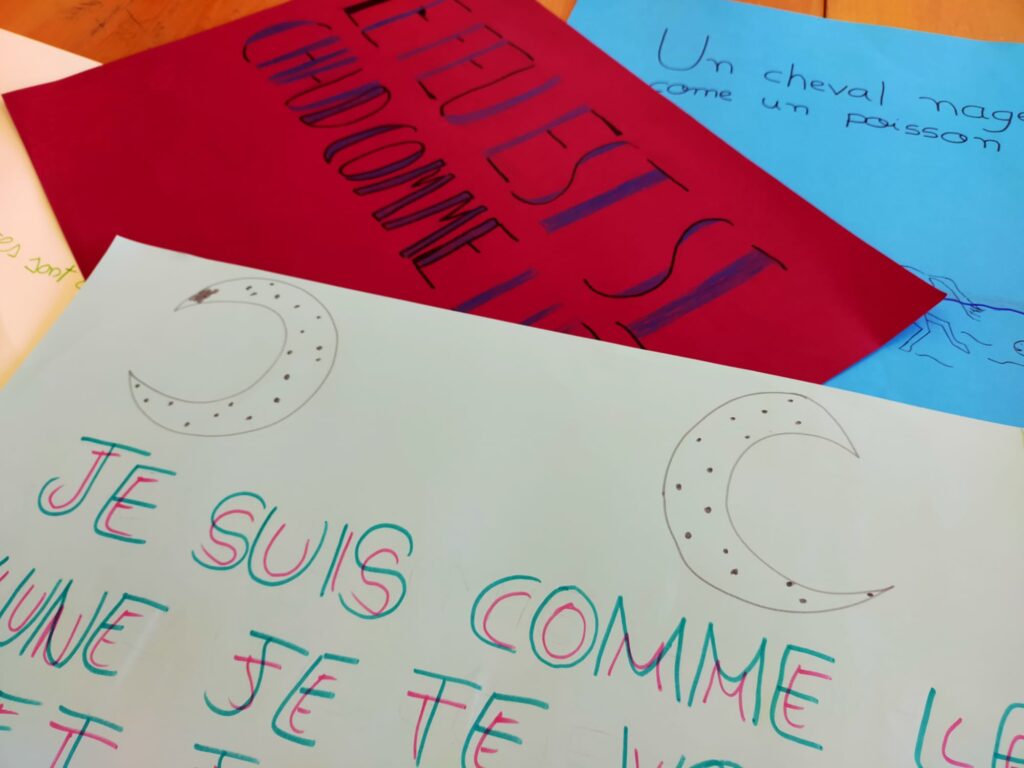 LE FEU EST SI
CHAUD COMME
Un cheval nage
come un poisson
sont
JE SUIS COMME LE
LUNE JE TE
ET